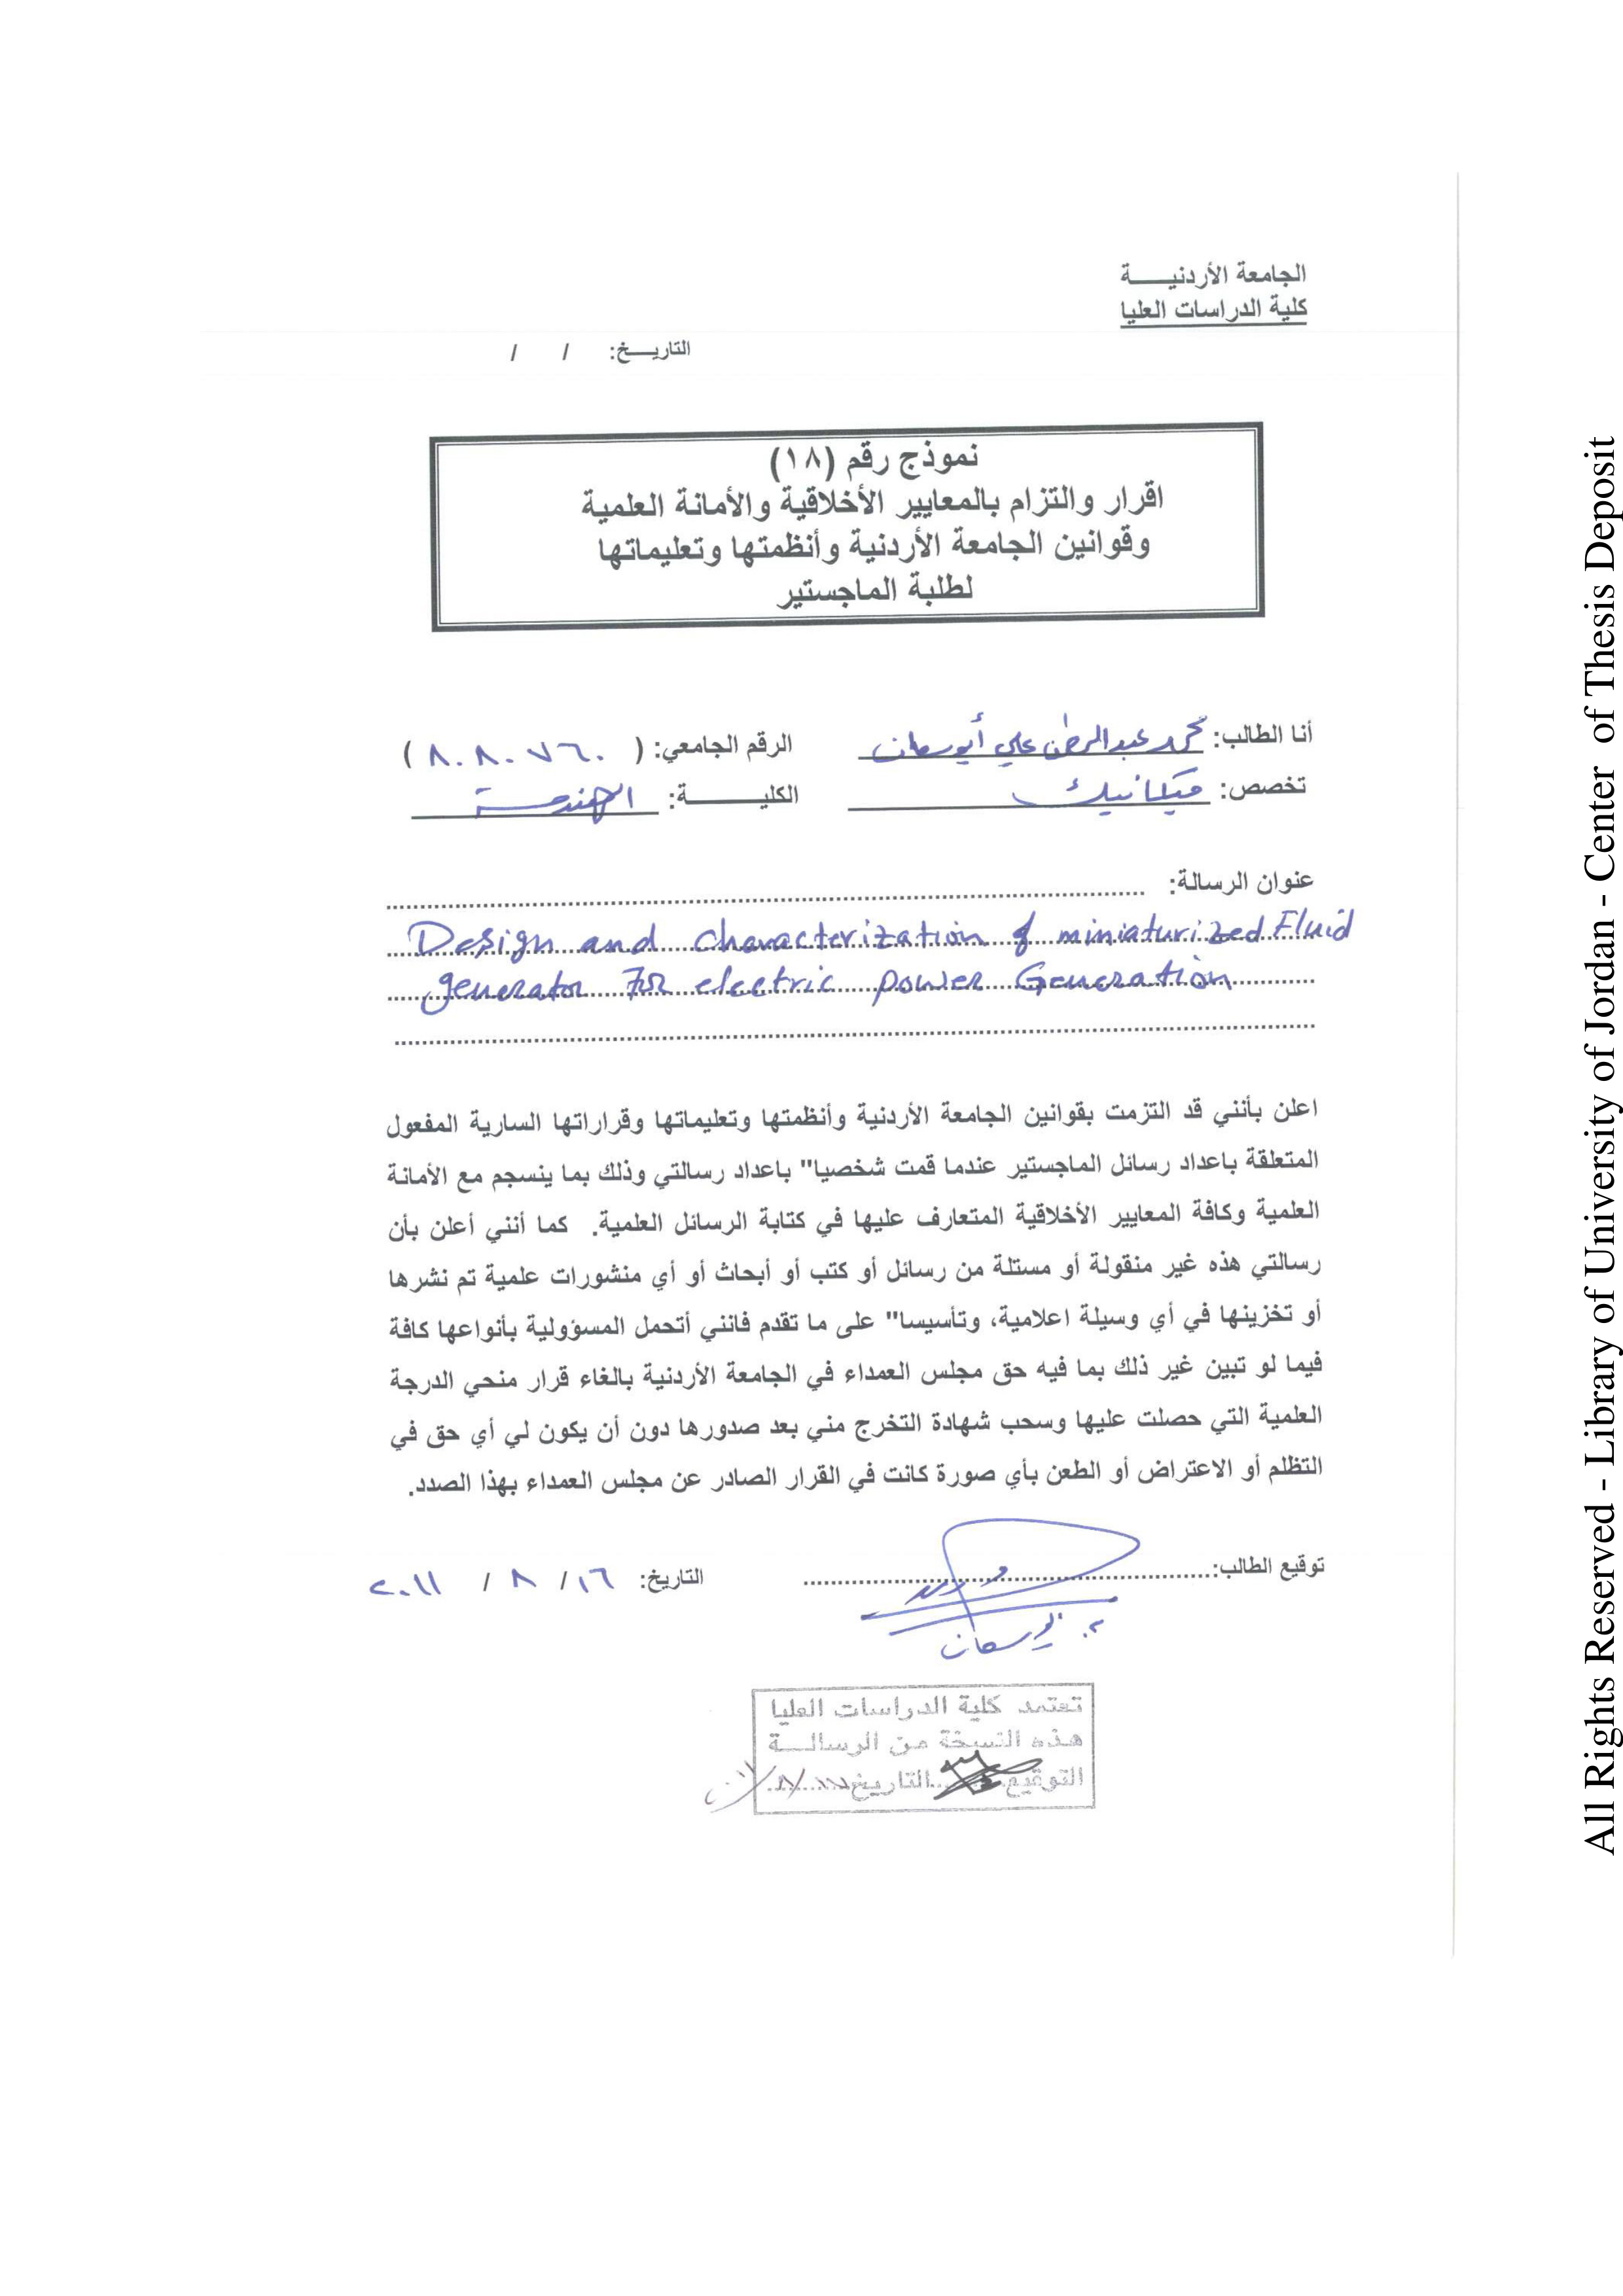 الجامعة الأردنيـــــة
كلية الدراسات العليا
التاريـــخ: / /
نموذج رقم (١٨)
اقرار والتزام بالمعايير الأخلاقية والأمانة العلمية
وقوانين الجامعة الأردنية وأنظمتها وتعليماتها
لطلبة الماجستير
أنا الطالب: محمد عبدالرحمن علي أبوسمعان الرقم الجامعي: ( ٨٠٨٠٧٦٠ )
تخصص: ميكانيك الكليــــــــة: الهندسة
عنوان الرسالة:
Design and characterization of miniaturized Fluid
generator For electric power Generation
اعلن بأنني قد التزمت بقوانين الجامعة الأردنية وأنظمتها وتعليماتها وقراراتها السارية المفعول
المتعلقة باعداد رسائل الماجستير عندما قمت شخصيا" باعداد رسالتي وذلك بما ينسجم مع الأمانة
العلمية وكافة المعايير الأخلاقية المتعارف عليها في كتابة الرسائل العلمية. كما أنني أعلن بأن
رسالتي هذه غير منقولة أو مستلة من رسائل أو كتب أو أبحاث أو أي منشورات علمية تم نشرها
أو تخزينها في أي وسيلة اعلامية، وتأسيسا" على ما تقدم فانني أتحمل المسؤولية بأنواعها كافة
فيما لو تبين غير ذلك بما فيه حق مجلس العمداء في الجامعة الأردنية بالغاء قرار منحي الدرجة
العلمية التي حصلت عليها وسحب شهادة التخرج مني بعد صدورها دون أن يكون لي أي حق في
التظلم أو الاعتراض أو الطعن بأي صورة كانت في القرار الصادر عن مجلس العمداء بهذا الصدد.
توقيع الطالب: التاريخ: ١٦ / ٨ / ٢٠١١
تعتمد كلية الدراسات العليا
هذه النسخة من الرسالـــة
التوقيع التاريخ
All Rights Reserved - Library of University of Jordan - Center of Thesis Deposit